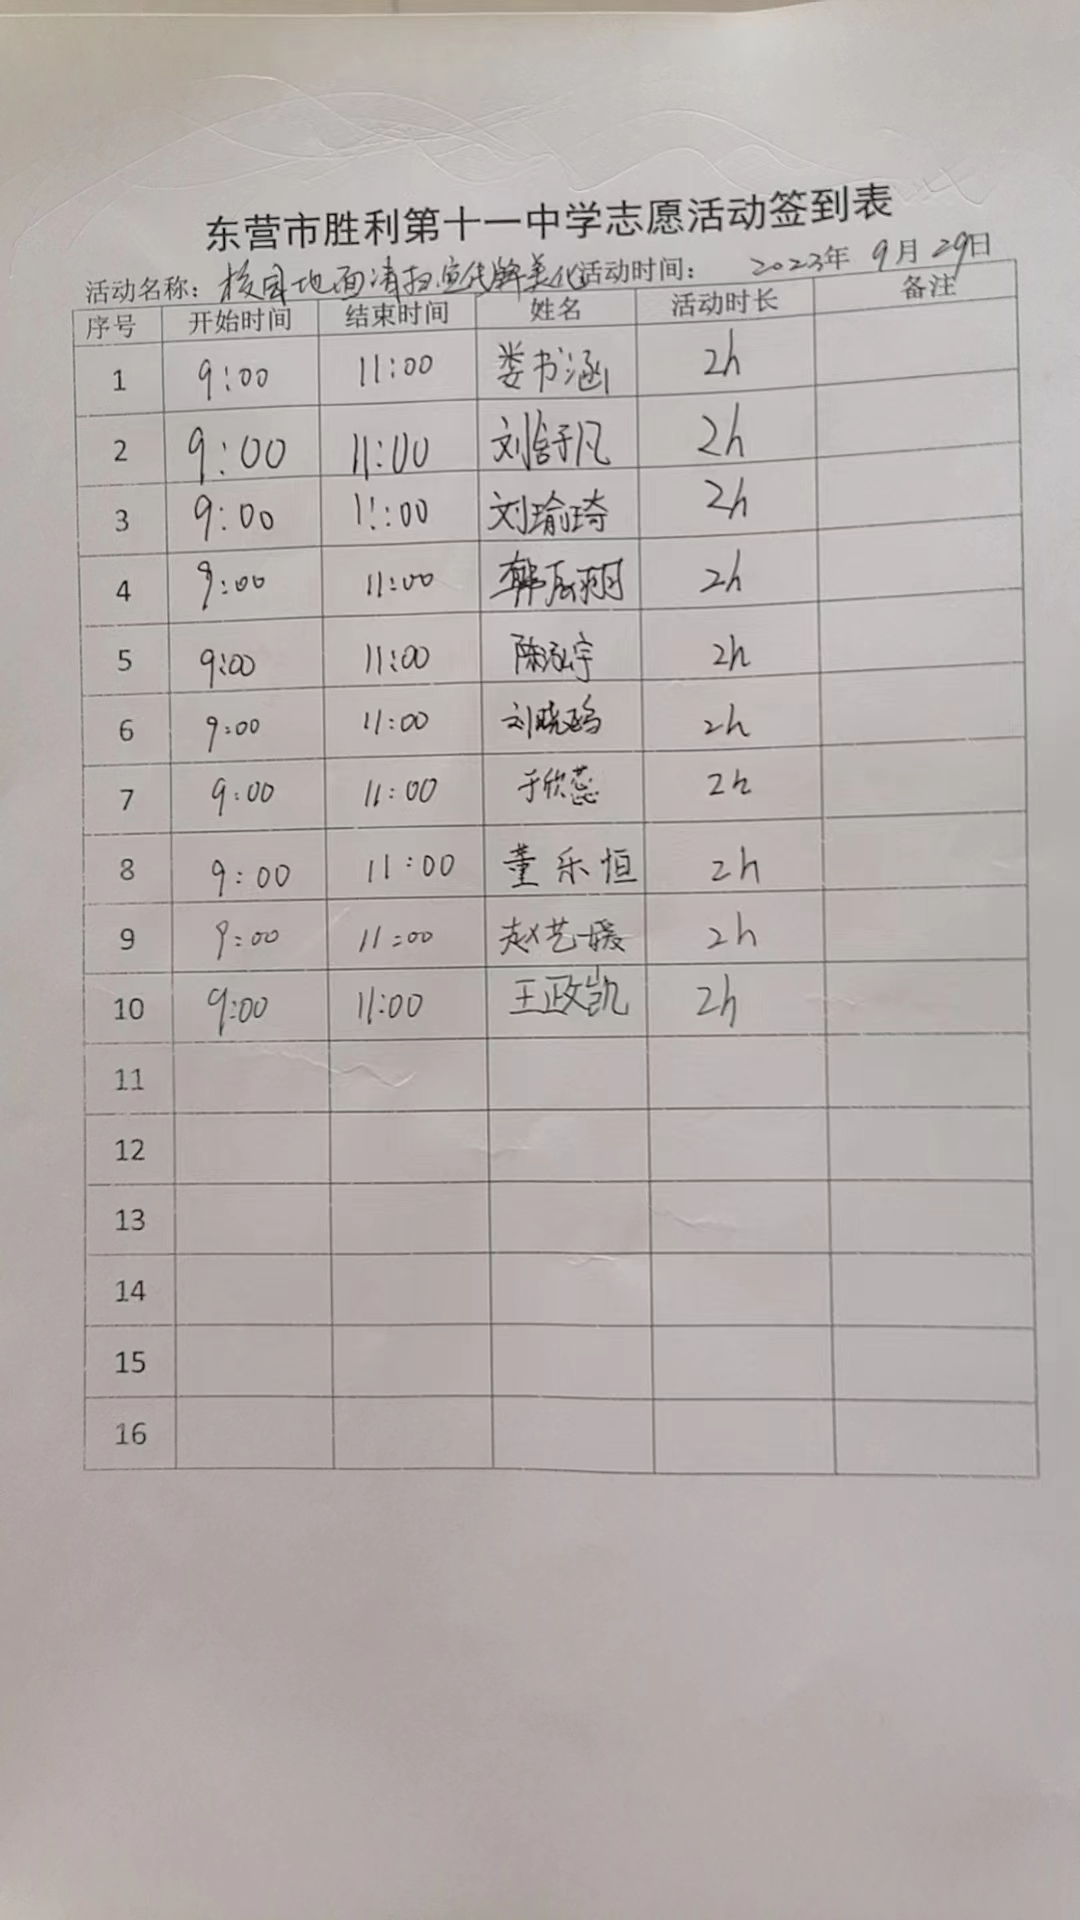 东营市胜利第十一中学志愿活动签到表
活动名称：校园地面清扫宣传牌美化活动时间： 2023年 9月 29日
序号 开始时间 结束时间 姓名 活动时长 备注
1 9:00 11:00 娄书涵 2h
2 9:00 11:00 刘舒凡 2h
3 9:00 11:00 刘瑜琦 2h
4 9:00 11:00 韩 2h
5 9:00 11:00 陈泓宇 2h
6 9:00 11:00 刘晓 2h
7 9:00 11:00 于欣蕊 2h
8 9:00 11:00 董乐恒 2h
9 9:00 11:00 赵艺媛 2h
10 9:00 11:00 王政凯 2h
11
12
13
14
15
16